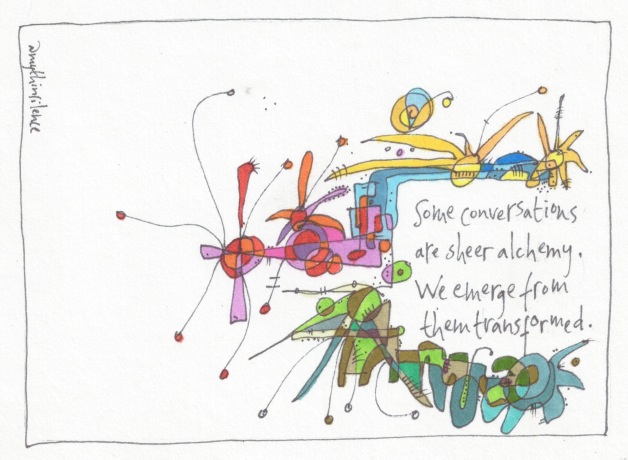 @mythinsilence
Some conversations
are sheer alchemy.
We emerge from
them transformed.